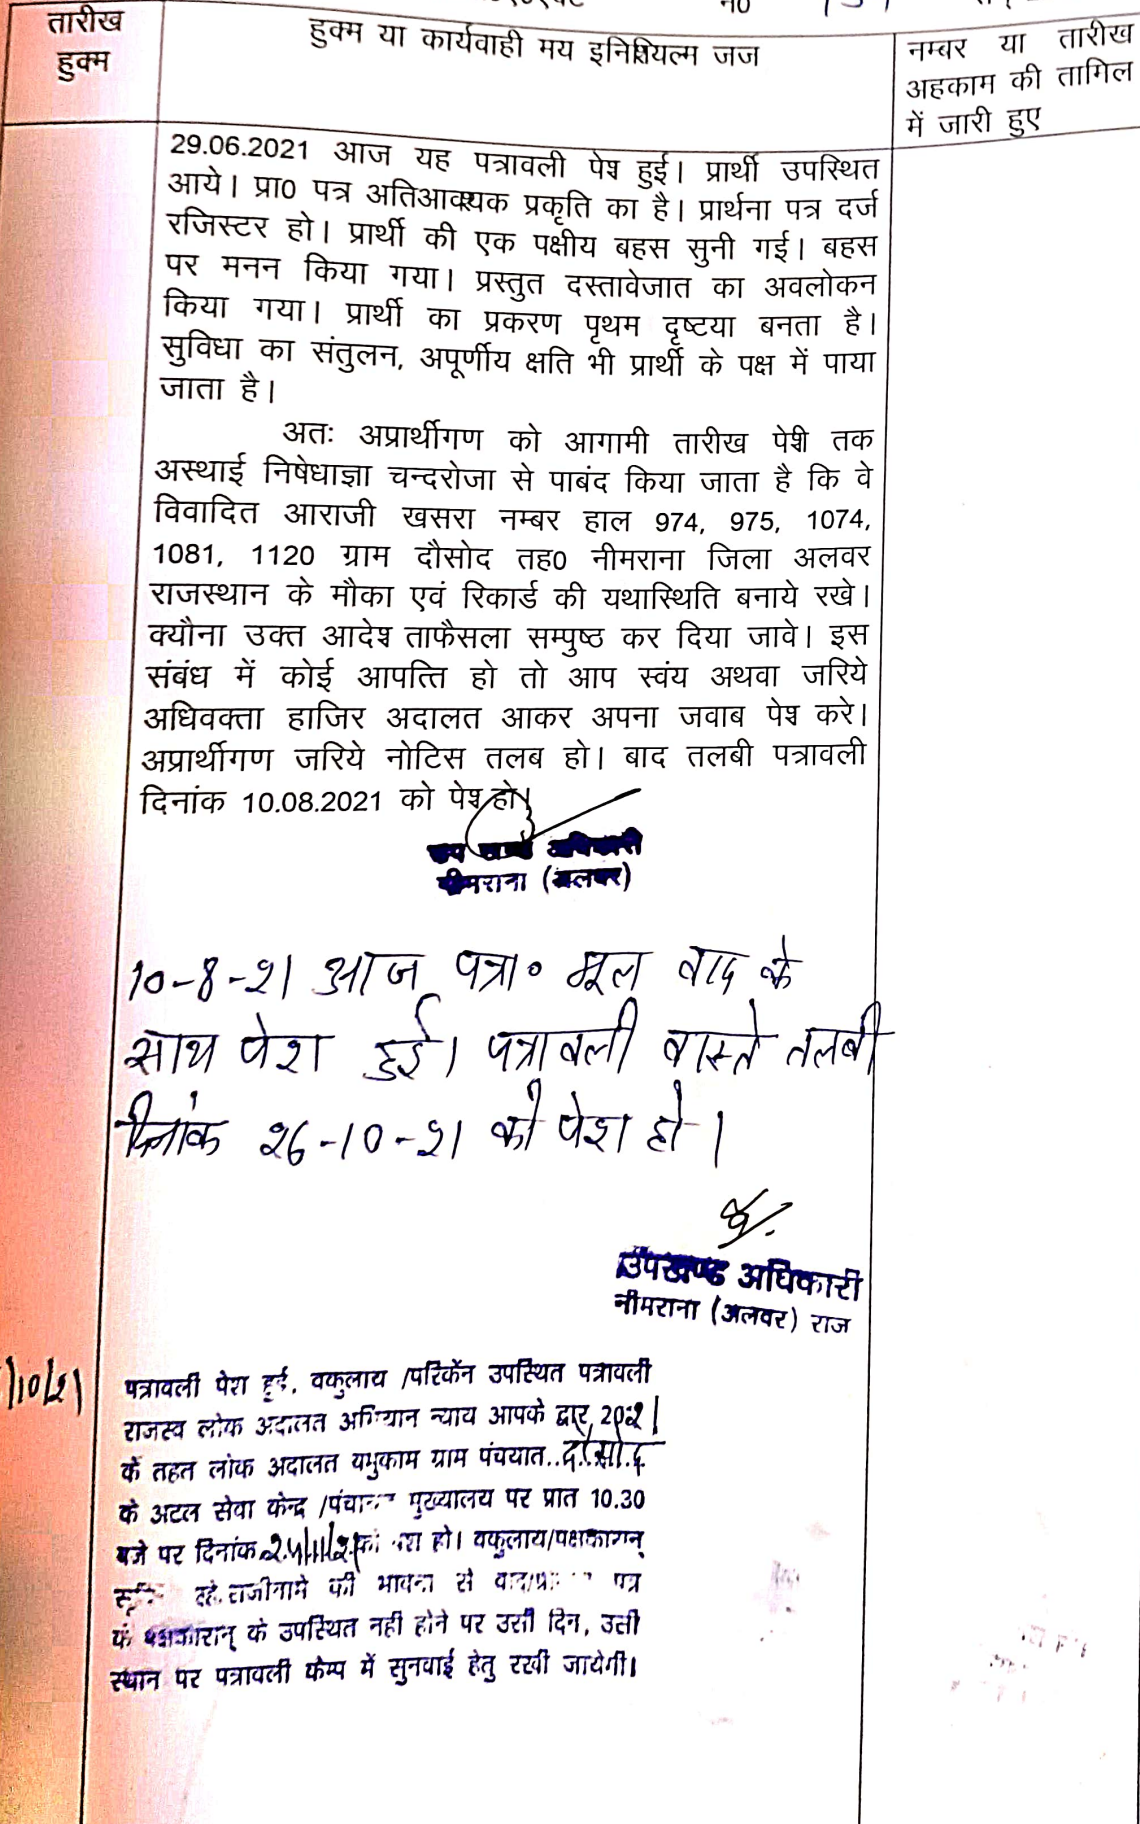 न0
तारीख
हुक्म
हुक्म या कार्यवाही मय इनिशियल्म जज
नम्बर या तारीख
अहकाम की तामिल
में जारी हुए
29.06.2021 आज यह पत्रावली पेश हुई। प्रार्थी उपस्थित
आये। प्रा0 पत्र अतिआवश्यक प्रकृति का है। प्रार्थना पत्र दर्ज
रजिस्टर हो। प्रार्थी की एक पक्षीय बहस सुनी गई। बहस
पर मनन किया गया। प्रस्तुत दस्तावेजात का अवलोकन
किया गया। प्रार्थी का प्रकरण पृथम दृष्टया बनता है।
सुविधा का संतुलन, अपूर्णीय क्षति भी प्रार्थी के पक्ष में पाया
जाता है।
अतः अप्रार्थीगण को आगामी तारीख पेशी तक
अस्थाई निषेधाज्ञा चन्दरोजा से पाबंद किया जाता है कि वे
विवादित आराजी खसरा नम्बर हाल 974, 975, 1074,
1081, 1120 ग्राम दौसोद तह0 नीमराना जिला अलवर
राजस्थान के मौका एवं रिकार्ड की यथास्थिति बनाये रखे।
क्यौना उक्त आदेश ताफैसला सम्पुष्ठ कर दिया जावे। इस
संबंध में कोई आपत्ति हो तो आप स्वंय अथवा जरिये
अधिवक्ता हाजिर अदालत आकर अपना जवाब पेश करे।
अप्रार्थीगण जरिये नोटिस तलब हो। बाद तलबी पत्रावली
दिनांक 10.08.2021 को पेश हो।
उप खण्ड अधिकारी
नीमराना (अलवर)
10-8-21 आज पत्रा० मूल वाद के
साथ पेश हुई। पत्रावली वास्ते तलबी
दिनांक 26-10-21 को पेश हो।
उपखण्ड अधिकारी
नीमराना (अलवर) राज
/10/21
पत्रावली पेश हुई. वकुलाय /परिकेंन उपस्थित पत्रावली
राजस्व लोक अदालत अभियान न्याय आपके द्वार, 2021
के तहत लोक अदालत यमुकाम ग्राम पंचयात..दौसोद
के अटल सेवा केन्द्र /पंचायत मुख्यालय पर प्रात 10.30
बजे पर दिनांक 24/11/21 को पेश हो। वकुलाय/पक्षकारान्
रहे. राजीनामे की भावना से पत्र
के पक्षकारान् के उपस्थित नही होने पर उसी दिन, उसी
स्थान पर पत्रावली केम्प में सुनवाई हेतु रखी जायेगी।